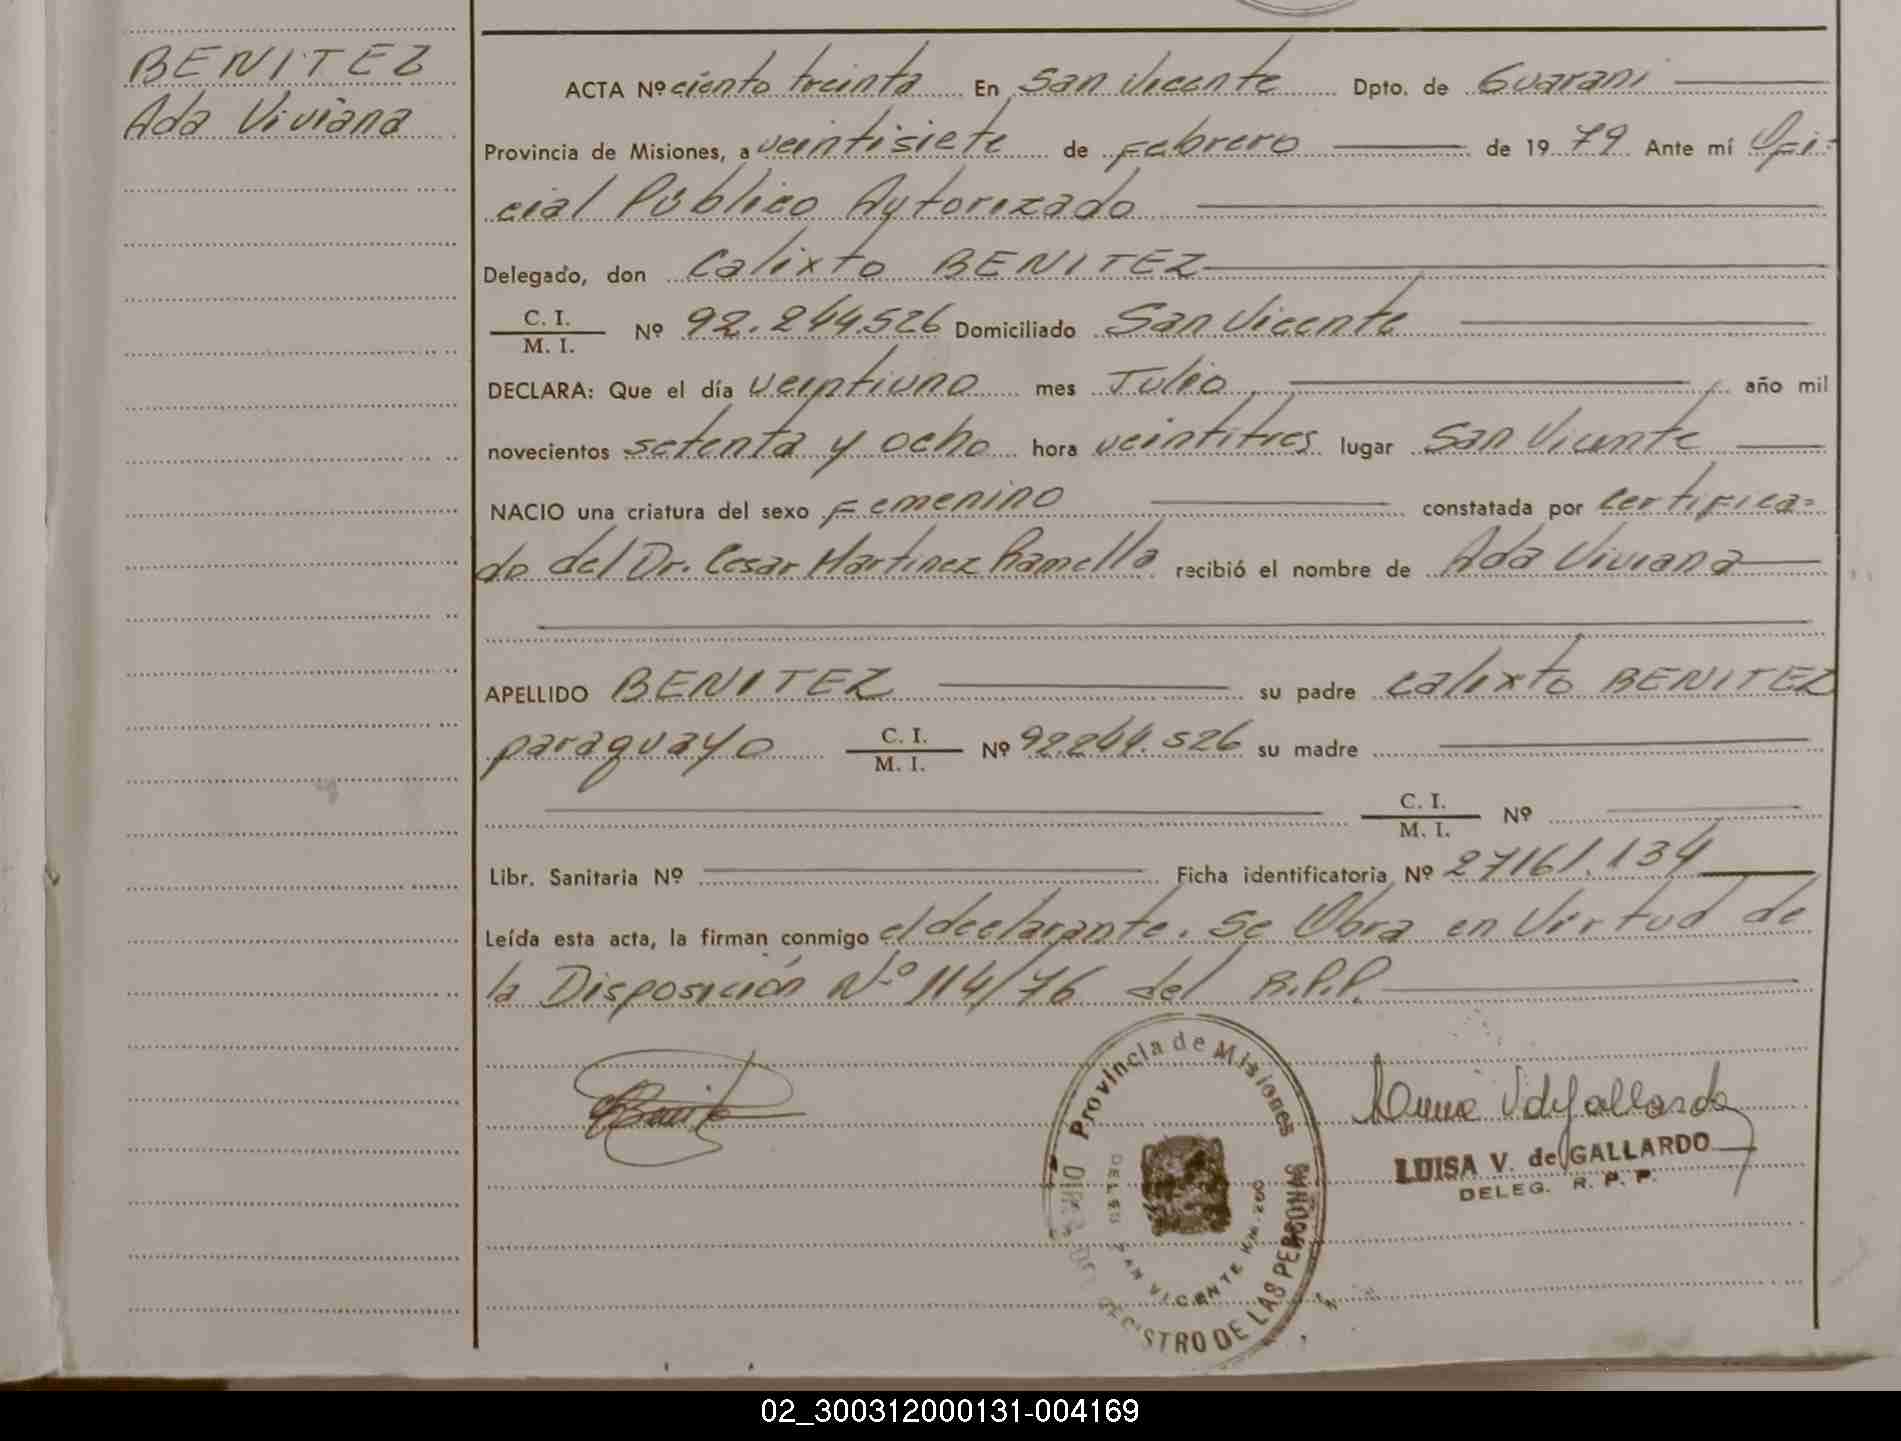 BENITEZ
Ada Viviana
ACTA Nº ciento treinta En San Vicente Dpto. de Guarani
Provincia de Misiones, a veintisiete de Febrero de 19 79 Ante mí Ofi-
cial Público Autorizado
Delegado, don Calixto BENITEZ
C. I. / M. I. Nº 92.244.526 Domiciliado San Vicente
DECLARA: Que el día veintiuno mes Julio año mil
novecientos setenta y ocho hora veintitres lugar San Vicente
NACIO una criatura del sexo Femenino constatada por Certifica=
do del Dr. Cesar Martinez Ramella recibió el nombre de Ada Viviana
APELLIDO BENITEZ su padre Calixto BENITEZ
paraguayo C. I. / M. I. Nº 92.244.526 su madre
C. I. / M. I. Nº
Libr. Sanitaria Nº Ficha identificatoria Nº 27161.134
Leída esta acta, la firman conmigo el declarante. Se Obra en Virtud de
la Disposición Nº 114/76 del R.P.P.
Provincia de Misiones
REGISTRO DE LAS PERSONAS
SAN VICENTE Km. 260
LUISA V. de GALLARDO
DELEG. R. P. P.
02_300312000131-004169